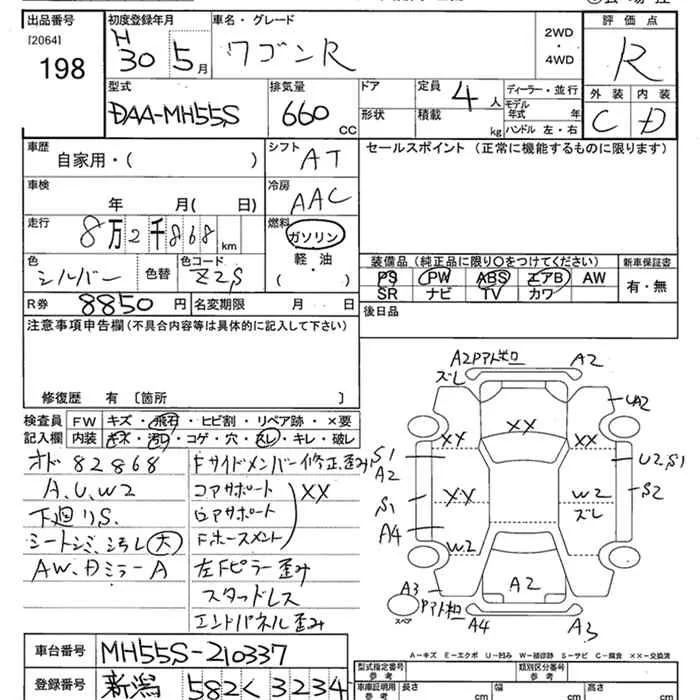 出品番号 初度登録年月 車名・グレード 2WD・4WD 評価点
[2064] H30 5月 ワゴンR R
198
型式 排気量 ドア 定員 ディーラー・並行 外装 内装
DAA-MH55S 660 CC 形状 積載 4人 kg モデル年式 年 ハンドル 左・右 C D
車歴 シフト セールスポイント (正常に機能するものに限ります)
自家用・( ) AT
車検 冷房
年 月( 日) AAC
走行 燃料
8万2千868 km ガソリン
軽・油
( )
色 色替 色コード
シルバー Z2S
装備品 (純正品に限り〇をつけてください) 新車保証書
PS PW ABS エアB AW 有・無
SR ナビ TV カワ
R券 8850円 名変期限 月 日 後日品
注意事項申告欄 (不具合内容等は具体的に記入して下さい)
修復歴 有 〔箇所 〕
検査員 FW キズ・飛石・ヒビ割・リペア跡・×要
記入欄 内装 キズ・汚レ・コゲ・穴・スレ・キレ・破レ
オド 82868
A.U.W2
下廻りS.
シートシミ、汚レ 大
AW.Dミラー A
Fサイドメンバー修正、歪み
コアサポート
ロアサポート XX
F.ホースメント
左Fピラー歪み
スタッドレス
エンドパネル歪み
A2 Pアト ズレ A2
UA2
XX XX XX
S1 A2 U2,S1
S1 XX W2 ズレ S2
A4 W2
A3 Pアト A2
スペア A4 A3
A-キズ E-エクボ U-凹み W-補修跡 S-サビ C-腐食 XX-交換済
車台番号 MH55S-210337
登録番号 新潟 582 く 3234
型式指定番号 参考 類別区分番号 参考
車庫証明用 参考 長さ cm 幅 cm 高さ cm